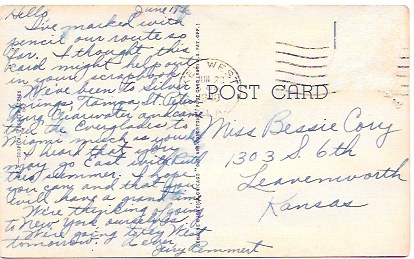 Hello June 17th
I've marked with
pencil our route so
far. I thought this
card might help out
in your scrapbook.
We've been to Silver
Springs, Tampa, St. Peters
burg, Clearwater and came
thru the Everglades to
Miami much as you'd
I heard that you
may go East with Ruth
this summer. I hope
you can and that you
will have a grand time
We're thinking of going
to New York ourselves.
Were going to Key West
tomorrow.
Jerry Remmert
KEY WEST
JUN
POST CARD
Miss Bessie Cory
1303 S. 6th
Leavenworth
Kansas